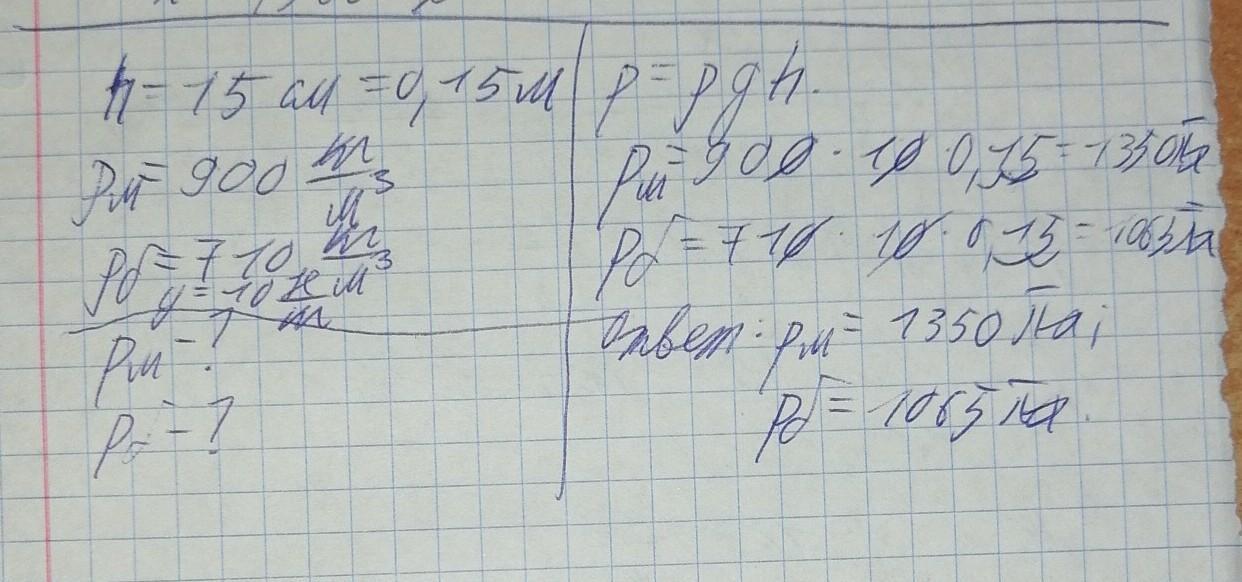 h = 15 см = 0,15 м
ρм = 900 кг/м³
ρб = 710 кг/м³
g = 10 Н/кг
pм - ?
pб - ?
p = ρgh.
pм = 900 · 10 · 0,15 = 1350 Па
pб = 710 · 10 · 0,15 = 1065 Па
Ответ: pм = 1350 Па;
pб = 1065 Па.